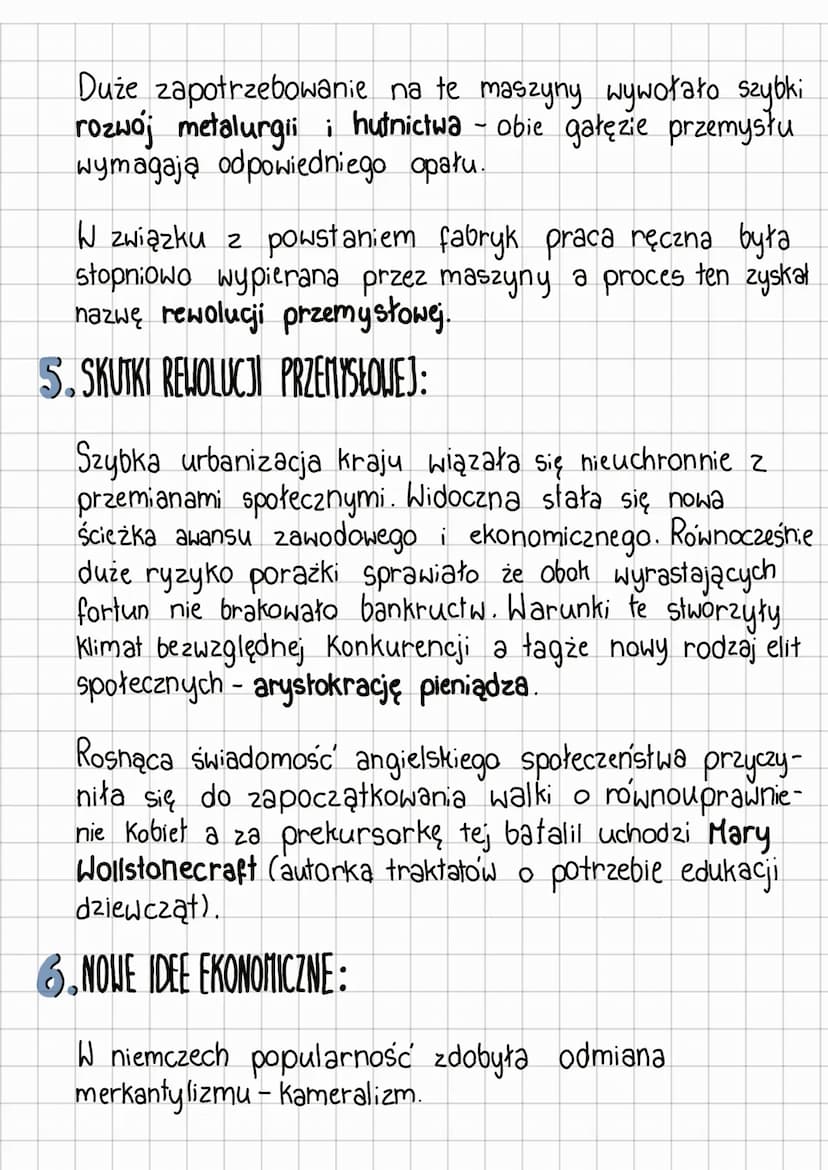 Duże zapotrzebowanie na te maszyny wywołało szybki
rozwój metalurgii i hutnictwa - obie gałęzie przemysłu
wymagają odpowiedniego opału.
W związku z powstaniem fabryk praca ręczna była
stopniowo wypierana przez maszyny a proces ten zyskał
nazwę rewolucji przemysłowej.
5. SKUTKI REWOLUCJI PRZEMYSŁOWEJ:
Szybka urbanizacja kraju wiązała się nieuchronnie z
przemianami społecznymi. Widoczna stała się nowa
ścieżka awansu zawodowego i ekonomicznego. Równocześnie
duże ryzyko porażki sprawiało że obok wyrastających
fortun nie brakowało bankructw. Warunki te stworzyły
klimat bezwzględnej konkurencji a tagże nowy rodzaj elit
społecznych - arystokrację pieniądza.
Rosnąca świadomość angielskiego społeczeństwa przyczy-
niła się do zapoczątkowania walki o równouprawnie-
nie kobiet a za prekursorkę tej batalil uchodzi Mary
Wollstonecraft (autorka traktatów o potrzebie edukacji
dziewcząt).
6. NOWE IDEE EKONOMICZNE:
W niemczech popularność zdobyła odmiana
merkantylizmu - kameralizm.